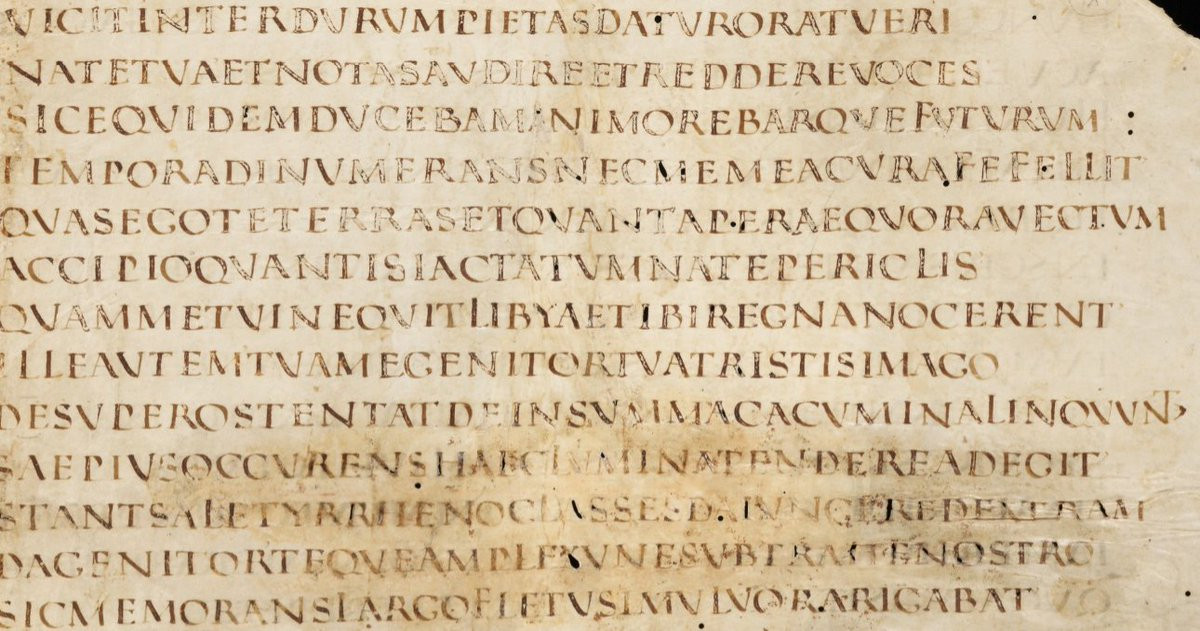 VICITINTERDVRVMPIETASDATVRORATVERI
NATETVAETNOTASAVDIREETREDDEREVOCES
SICEQVIDEMDVCEBAMANIMOREBARQVEFVTVRVM :
TEMPORADINVMERANSNECMEMEACVRAFEFELLIT
QVASEGOTETERRASETQVANTAPERAEQVORAVECTVM
ACCIPIOQVANTISIACTATVMNATEPERICLIS
QVAMMETVINEQVITLIBYAETIBIREGNANOCERENT
ILLEAVTEMTVAMEGENITORTVATRISTISIMAGO
DESVPEROSTENTATDEINSVMMACACVMINALINQVVNT
SAEPIVSOCCVRENSHAECLVMINATENDEREADEGIT
STANTSALETYRRHENOCLASSESDAIVNGEREDEXTRAM
DAGENITORTEQVEAMPLEXVNESVBTRAHENOSTRO
SICMEMORANSLARGOFLETVSIMVLVORARIGABAT